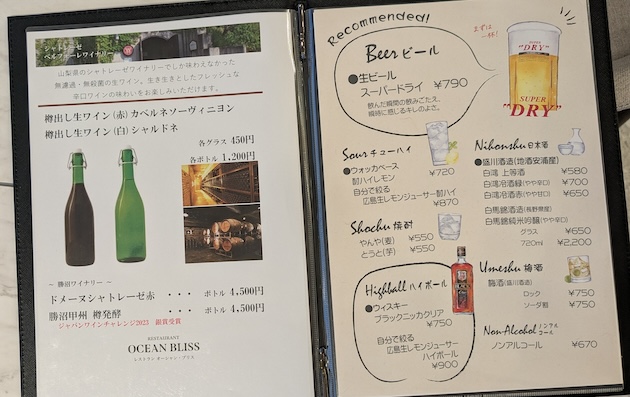 シャトレーゼ
ベルフォーレワイナリー
山梨県のシャトレーゼワイナリーでしか味わえなかった
無濾過・無殺菌の生ワイン。生き生きとしたフレッシュな
辛口ワインの味わいをお楽しみいただけます。
樽出し生ワイン(赤)カベルネソーヴィニヨン
樽出し生ワイン(白)シャルドネ
各グラス 450円
各ボトル 1,200円
ー 勝沼ワイナリー ー
ドメーヌシャトレーゼ赤 ・・・ ボトル 4,500円
勝沼甲州 樽発酵 ・・・ ボトル 4,500円
ジャパンワインチャレンジ2023 銀賞受賞
RESTAURANT
OCEAN BLISS
レストラン オーシャン・ブリス
Recommended!
Beer ビール
●生ビール
スーパードライ ¥790
飲んだ瞬間の飲みごたえ、
瞬時に感じるキレのよさ。
まずは
一杯!
SUPER
"DRY"
SUPER
"DRY"
Sour チューハイ
●ウォッカベース
酎ハイレモン ¥720
自分で絞る
広島生レモンジューサー酎ハイ
¥870
Shochu 焼酎
やんや(麦) ¥550
とうと(芋) ¥550
Highball ハイボール
●ウィスキー
ブラックニッカクリア
¥750
自分で絞る
広島生レモンジューサー
ハイボール
¥900
Nihonshu 日本酒
●盛川酒造(地酒安浦産)
白鴻 上等酒 ¥580
白鴻冷酒緑(やや辛口) ¥700
白鴻冷酒赤(やや甘口) ¥650
白馬錦酒造(長野県産)
白馬錦純米吟醸(やや辛口)
グラス ¥650
720ml ¥2,200
Umeshu 梅酒
梅酒(盛川酒造)
ロック ¥750
ソーダ割 ¥750
Non-Alcohol ノンアルコール
ノンアルコール ¥670